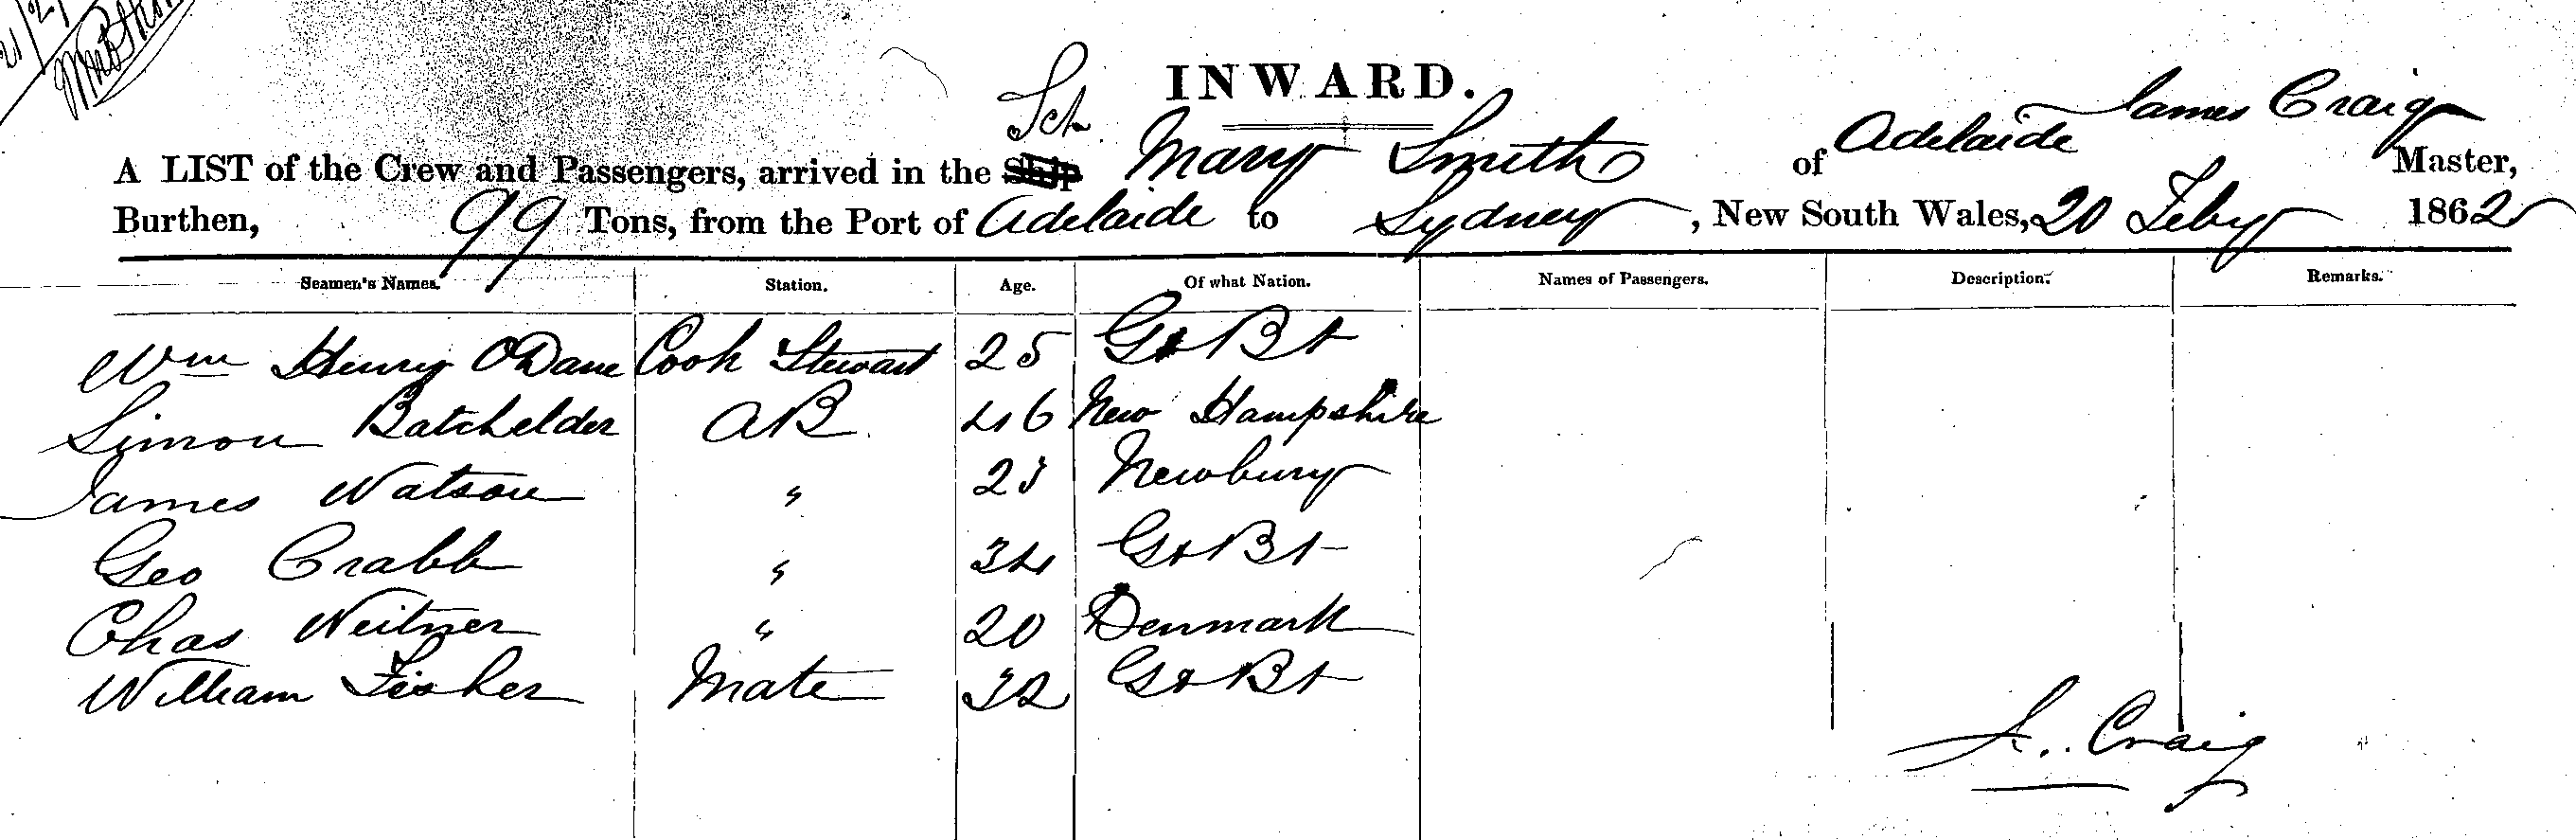 INWARD.
Sch
James Craig
A LIST of the Crew and Passengers, arrived in the Ship Mary Smith of Adelaide Master,
Burthen, 99 Tons, from the Port of Adelaide to Sydney, New South Wales, 20 Feby 1862
Seamen's Names. Station. Age. Of what Nation. Names of Passengers. Description. Remarks.
Wm Henry O'Dane Cook Stewart 25 Gt Bt
Simon Batchelder AB. 46 New Hampshire
James Watson " 23 Newbury
Geo Crabb " 34 Gt Bt
Chas Weitner " 20 Denmark
William Fisher Mate 32 Gt Bt
J. Craig